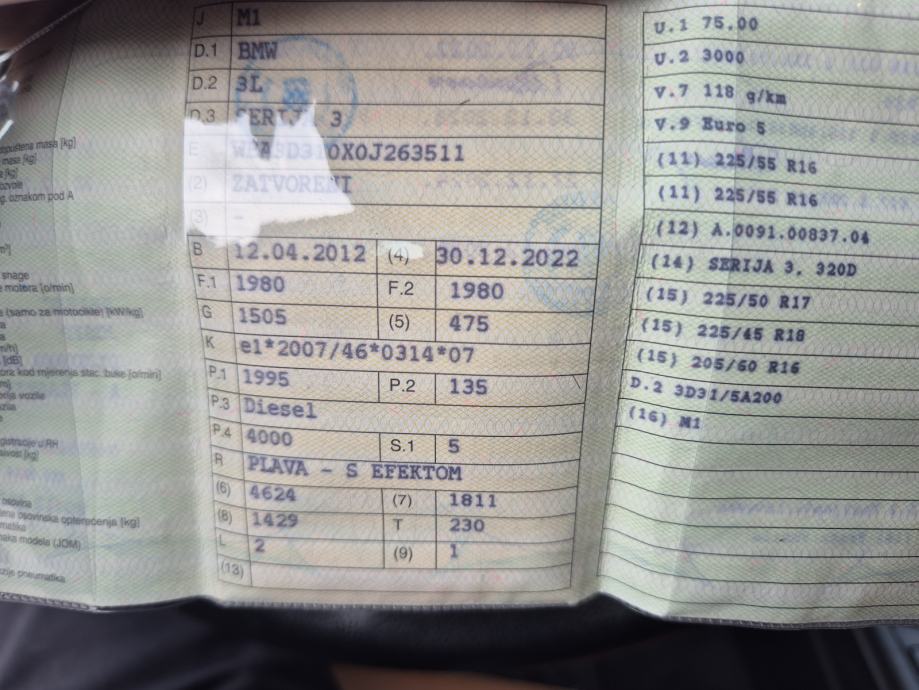 opuštena masa [kg]
masa [kg]
a [kg]
ozvole
g. oznakom pod A
snage
e motora [o/min]
a (samo za motocikle) [kW/kg]
[dB]
ora kod mjerenja stac. buke [o/min]
vozila
gistracije u RH
osovina
osovinska opterećenja [kg]
matika
naka modela (JOM)
zije pneumatika
J M1
D.1 BMW
D.2 3L
D.3 SERIJA 3
E
(2) ZATVORENI
(3) -
B 12.04.2012 (4) 30.12.2022
F.1 1980 F.2 1980
G 1505 (5) 475
K e1*2007/46*0314*07
P.1 1995 P.2 135
P.3 Diesel
P.4 4000 S.1 5
R PLAVA - S EFEKTOM
(6) 4624 (7) 1811
(8) 1429 T 230
L 2 (9) 1
(13)
U.1 75.00
U.2 3000
V.7 118 g/km
V.9 Euro 5
(11) 225/55 R16
(11) 225/55 R16
(12) A.0091.00837.04
(14) SERIJA 3, 320D
(15) 225/50 R17
(15) 225/45 R18
(15) 205/60 R16
D.2 3D31/5A200
(16) M1